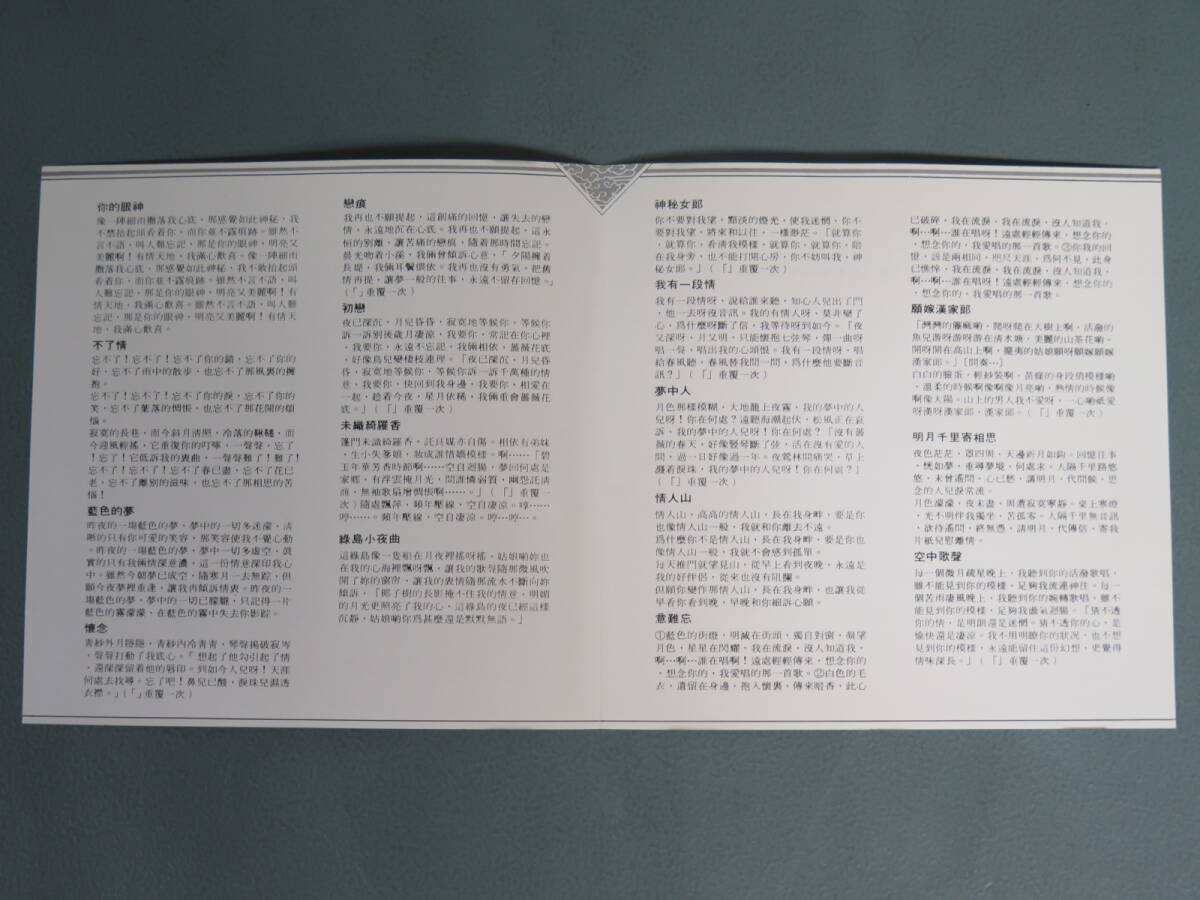 你的眼神
像一陣細雨灑落我心底，那感覺如此神秘，我
不禁抬起頭看着你，而你並不露痕跡。雖然不
言不語，叫人難忘記，那是你的眼神，明亮又
美麗啊！有情天地，我滿心歡喜。像一陣細雨
灑落我心底，那感覺如此神秘，我不敢抬起頭
看着你，而你並不露痕跡。雖然不言不語，叫
人難忘記，那是你的眼神，明亮又美麗啊！有
情天地，我滿心歡喜。雖然不言不語，叫人難
忘記，那是你的眼神，明亮又美麗啊！有情天
地，我滿心歡喜。
不了情
忘不了！忘不了！忘不了你的錯，忘不了你的
好，忘不了雨中的散步，也忘不了那風裏的擁
抱。
忘不了！忘不了！忘不了你的淚，忘不了你的
笑，忘不了葉落的惆悵，也忘不了那花開的煩
惱！
寂寞的長巷，而今斜月清照，冷落的鞦韆，而
今迎風輕搖，它重復你的叮嚀，一聲聲，忘了
！忘了！它低訴我的衷曲，一聲聲難了！難了！
忘不了！忘不了！忘不了春已盡，忘不了花已
老，忘不了離別的滋味，也忘不了那相思的苦
惱！
藍色的夢
昨夜的一場藍色的夢，夢中的一切多迷濛，清
晰的只有你可愛的笑容，那笑容使我不覺心動
。昨夜的一場藍色的夢，夢中一切多虛空，真
實的只有我倆情深意濃，這一份情意深印我心
中。雖然今朝夢已成空，隨寒月一去無踪，但
願今夜夢裡重逢，讓我再傾訴情衷。昨夜的一
場藍色的夢，夢中的一切已朦朧，只記得一片
藍色的霧濛濛，在藍色的霧中失去你影踪。
懷念
青紗外月隱隱，青紗內冷青青，琴聲揚破寂岑
，聲聲打動了我底心。「想起了他勾引起了情
，還深深留着他的唇印。到如今人兒呀！天涯
何處去找尋。忘了吧！鼻兒已酸，淚珠兒濕透
衣襟。」（「」重覆一次）
戀痕
我再也不願提起，這創痛的回憶，讓失去的戀
情，永遠地沉在心底。我再也不願提起，這永
恒的別離，讓苦痛的戀痕，隨着那時間忘記。
晨光吻着小溪，我倆曾傾訴心意，「夕陽擁着
長堤，我倆耳鬢偎依。我再也沒有勇氣，把舊
情再提，讓夢一般的往事，永遠不留存回憶。」
（「」重覆一次）
初戀
夜已深沉，月兒昏昏，寂寞地等候你，等候你
訴一訴別後歲月淒涼，我要你，常記在你心裡
，我要你，永遠不忘記。我倆相依，薔薇花底
，好像鳥兒變棲枝連理。「夜已深沉，月兒昏
昏，寂寞地等候你，等候你訴一訴千萬種的情
意，我要你，快回到我身邊，我要你，相愛在
一起，趁着今夜，星月依稀，我倆重會薔薇花
底。」（「」重覆一次）
未識綺羅香
蓬門未識綺羅香，託良媒亦自傷。相依有弟妹
，生小失爹娘，妝成誰惜嬌模樣。啊……「碧
玉年華芳香時節啊……空自迴腸，夢回何處是
家鄉，有浮雲掩月光，問誰憐弱質，幽怨託清
商，無袖歌扇增惆悵啊……。」（「」重覆一
次）隨處飄萍，頻年壓線，空自凄涼。哼……
哼……。頻年壓線，空自凄涼。哼…哼…。
綠島小夜曲
這綠島像一隻船在月夜裡搖呀搖，姑娘喲妳也
在我的心海裡飄呀飄，讓我的歌聲隨那微風吹
開了妳的窗帘，讓我的衷情隨那流水不斷向妳
傾訴，「椰子樹的長影掩不住我的情意，明媚
的月光更照亮了我的心，這綠島的夜已經這樣
沉靜，姑娘喲你爲甚麼還是默默無語。」
神秘女郎
你不要對我望，黯淡的燈光，使我迷惘，你不
要對我望，將來和以往，一樣渺茫。「就算你
，就算你，看清我模樣，就算你，就算你，陪
在我身旁，也不能打開心房，你不妨叫我，神
秘女郎。」（「」重覆一次）
我有一段情
我有一段情呀，說給誰來聽，知心人兒出了門
，他一去呀沒音訊。我的有情人呀，莫非變了
心，爲什麼呀斷了信，我等待呀到如今。「夜
又深呀，月又明，只能懷抱七弦琴，彈一曲呀
唱一聲，唱出我的心頭恨。我有一段情呀，唱
給春風聽，春風替我問一問，爲什麼他要斷音
訊？」（「」重覆一次）
夢中人
月色那樣模糊，大地籠上夜霧，我的夢中的人
兒呀！你在何處？遠聽海潮起伏，松風正在哀
訴，我的夢中的人兒呀！你在何處？「沒有薔
薇的春天，好像豎琴斷了弦，活在沒有愛的人
間，過一日好像過一年。夜鶯林間痛哭，草上
濺着淚珠，我的夢中的人兒呀！你在何處？」
（「」重覆一次）
情人山
情人山，高高的情人山，長在我身畔，要是你
也像情人山一般，我就和你離去不遠。
爲什麼你不是情人山，長在我身畔，要是你也
像情人山一般，我就不會感到孤單。
每天推門就望見山，從早上看到夜晚，永遠是
我的好伴侶，從來也沒有阻攔。
但願你變作那情人山，長在我身畔，也讓我從
早看你看到晚，早晚和你細訴心願。
意難忘
①藍色的街燈，明滅在街頭，獨自對窗，凝望
月色，星星在閃耀，我在流淚，沒人知道我，
啊…啊…誰在唱呀！遠處輕輕傳來，想念你的
，想念你的，我愛唱的那一首歌。②白色的毛
衣，遺留在身邊，抱入懷裏，傳來暗香，此心
已破碎，我在流淚，我在流淚，沒人知道我，
啊…啊…誰在唱呀！遠處輕輕傳來，想念你的
，想念你的，我愛唱的那一首歌。③你我的回
憶，該是兩相同，咫尺天涯，爲何不見，此身
已憔悴，我在流淚，我在流淚，沒人知道我，
啊…啊…誰在唱呀！遠處輕輕傳來，想念你的
，想念你的，我愛唱的那一首歌。
願嫁漢家郎
「灣灣的籐嘛喲，爬呀爬在大樹上啊，活潑的
魚兒游呀游呀游在清水塘，美麗的山茶花喲，
開呀開在高山上啊，擺夷的姑娘願呀願嫁願嫁
漢家郎。」［間奏…］
白白的臉蛋，輕紗裝啊，苗條的身段俏模樣喲
，溫柔的時候啊像啊像月亮喲，熱情的時候像
啊像太陽。山上的男人我不愛呀，一心喲祇愛
呀漢呀漢家郎，漢家郎。（「」重覆一次）
明月千里寄相思
夜色茫茫，罩四周，天邊新月如鈎。回憶往事
，恍如夢，重尋夢境，何處求。人隔千里路悠
悠，未曾遙問，心已愁，請明月，代問候，思
念的人兒淚常流。
月色濛濛，夜未盡，周遭寂寞寧靜。桌上寒燈
，光不明伴我獨坐，苦孤零。人隔千里無音訊
，欲待遙問，終無憑，請明月，代傳信，寄我
片紙兒慰離情。
空中歌聲
每一個微月疏星晚上，我聽到你的活潑歌唱，
雖不能見到你的模樣，足夠我流連神往。每一
個苦雨凄風晚上，我聽到你的婉轉歌唱，雖不
能見到你的模樣，足夠我盪氣迴腸。「猜不透
你的情，是明朗還是迷惘。猜不透你的心，是
愉快還是凄涼。我不用明瞭你的狀況，也不想
見到你的模樣，永遠能留住這份幻想，更覺得
情味深長。」（「」重覆一次）